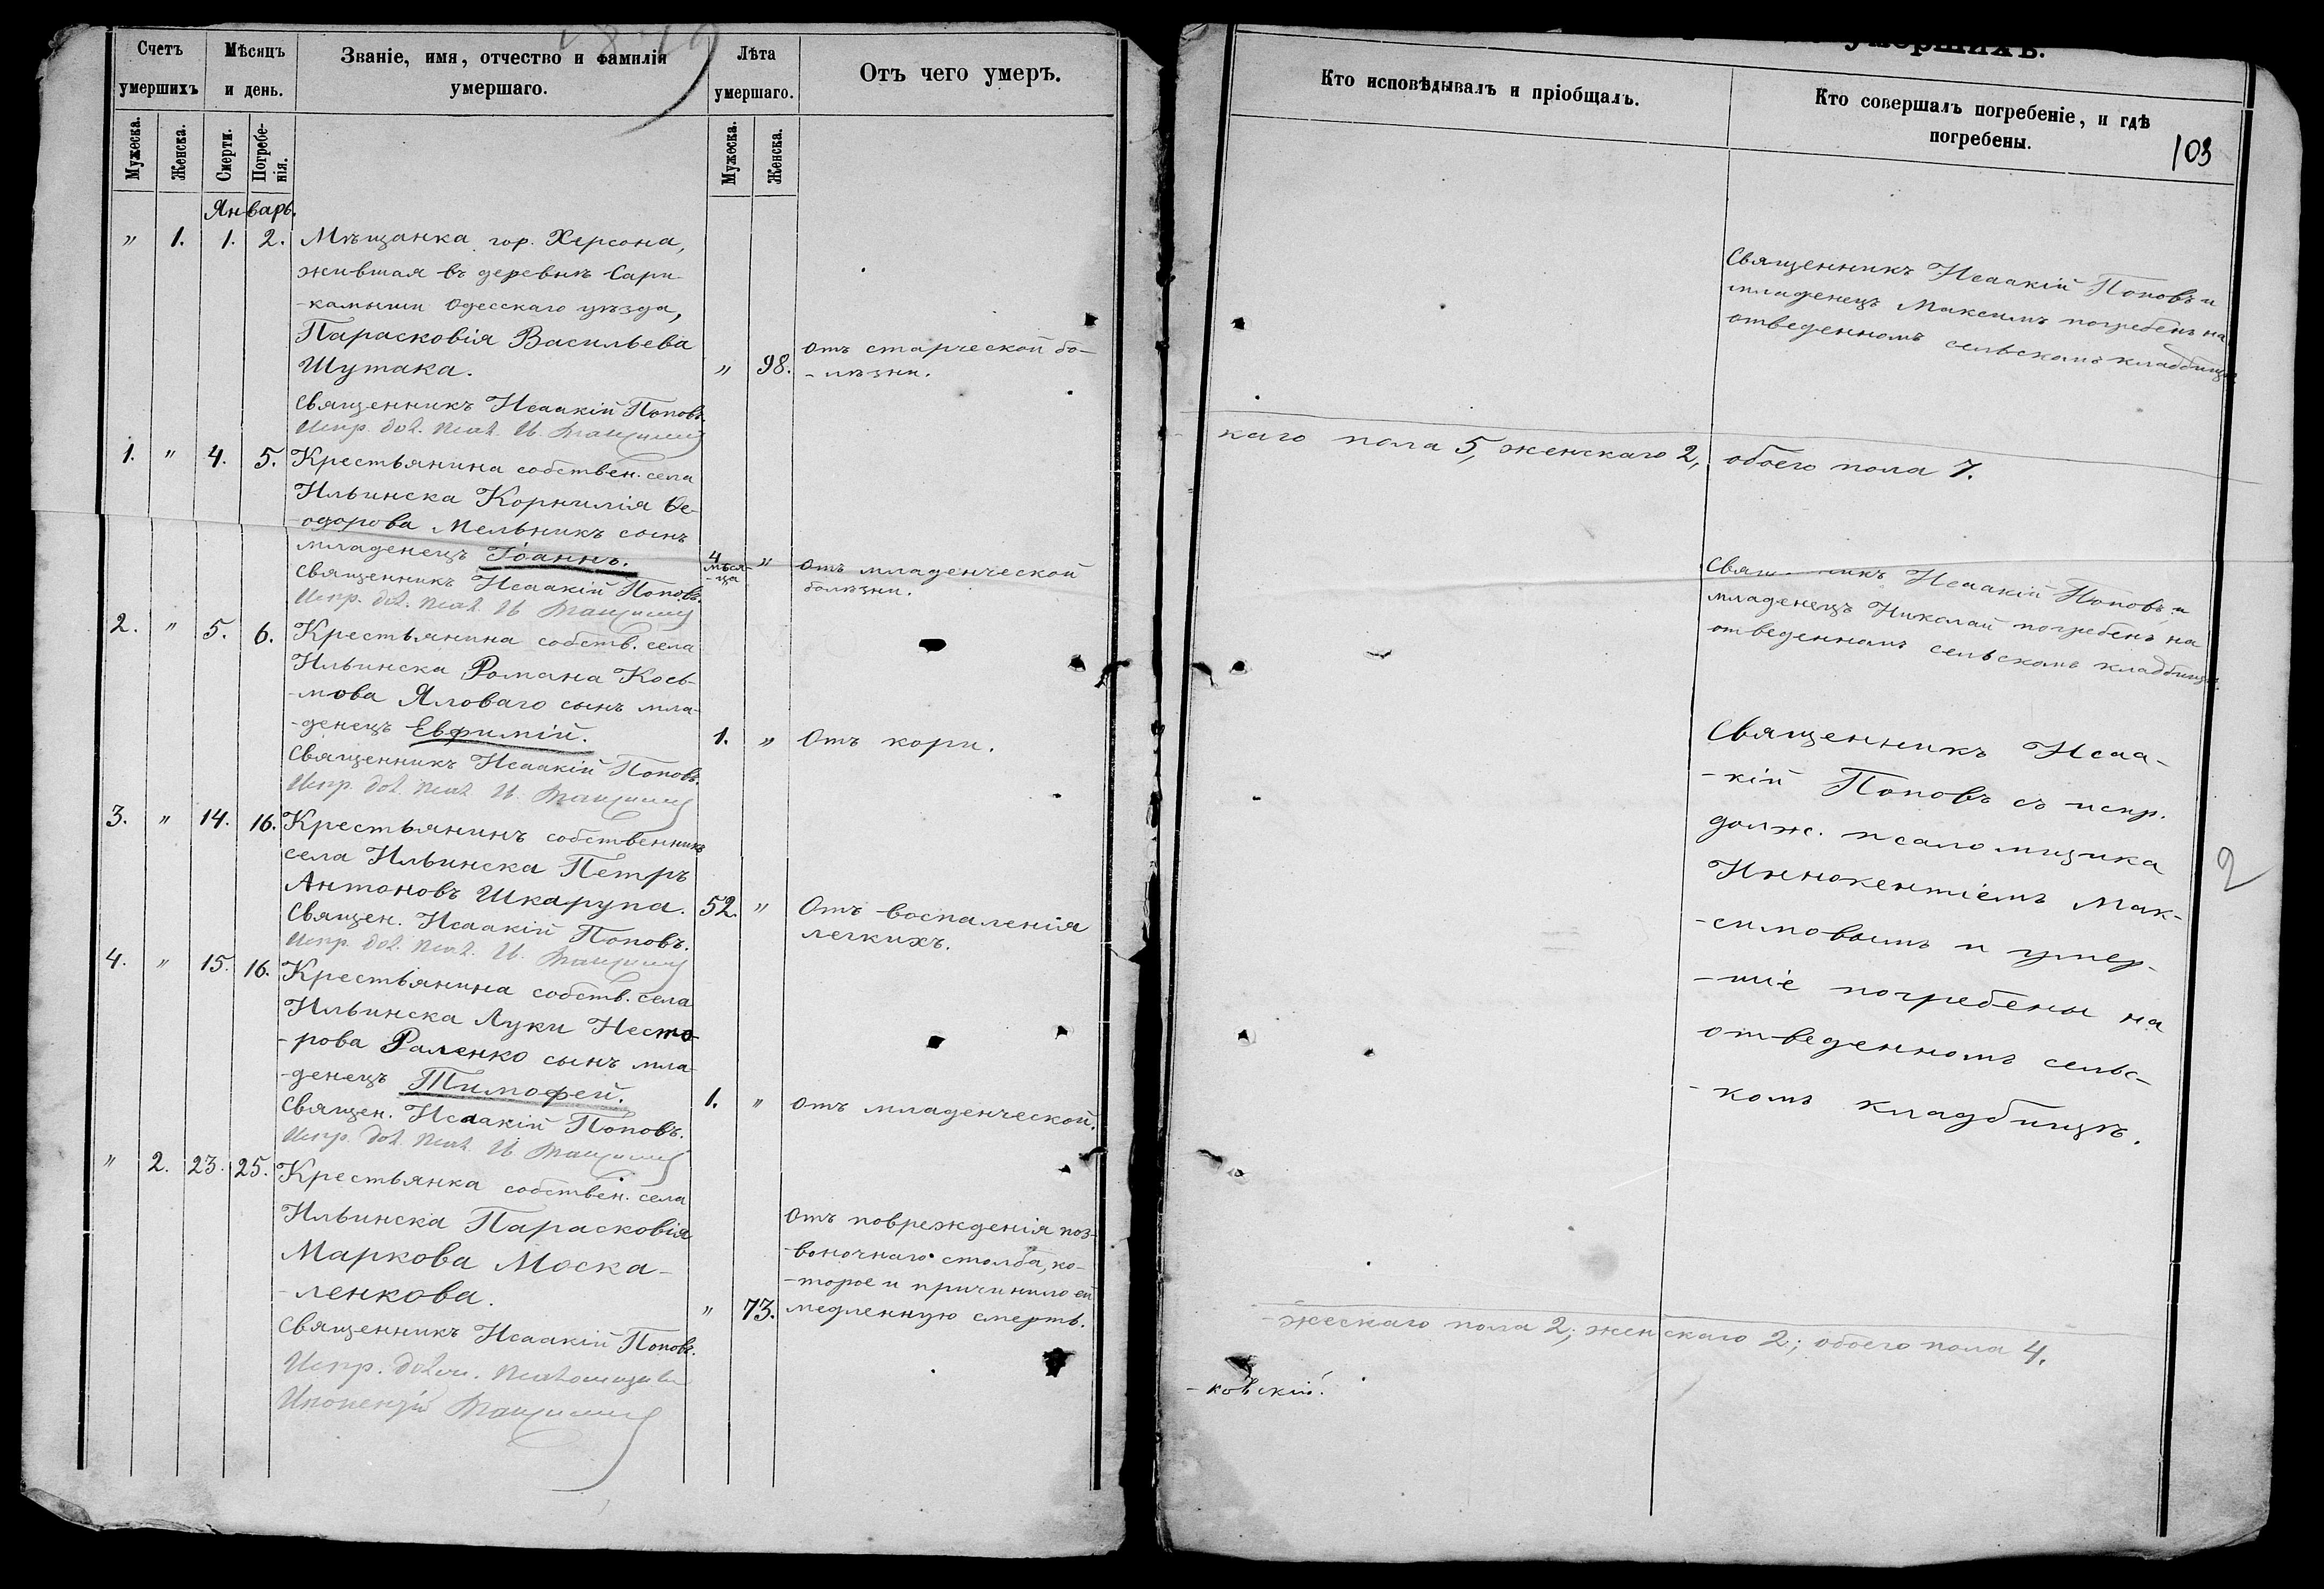 1879
Счетъ
умершихъ
Мѣсяцъ
и день.
Званіе, имя, отчество и фамилія
умершаго.
Лѣта
умершаго.
Отъ чего умеръ.
Мужеска.
Женска.
Смерти.
Погребе-
нія.
Мужеска.
Женска.
Январь.
" 1. 1. 2. Мѣщанка гор. Херсона,
жившая въ деревнѣ Сари-
-камыши Одесскаго уѣзда,
Парасковія Васильева
Шутака. " 98. Отъ старческой бо-
-лѣзни.
Священникъ Исаакій Поповъ.
Испр. дол. псал. И.
1. " 4. 5. Крестьянина собствен. села
Ильинска Корнилія Ѳе-
-одорова Мельникъ сынъ
младенецъ Іоаннъ. 4 мѣся-
-ца " Отъ младенческой
болѣзни.
Священникъ Исаакій Поповъ.
Испр. дол. псал. И.
2. " 5. 6. Крестьянина собств. села
Ильинска Романа Кось-
-мова Яловаго сынъ мла-
-денецъ Евфимій. 1. " Отъ кори.
Священникъ Исаакій Поповъ.
Испр. дол. псал. И.
3. " 14. 16. Крестьянинъ собственникъ
села Ильинска Петръ
Антоновъ Шкарупа. 52. " Отъ воспаленія
легкихъ.
Священ. Исаакій Поповъ.
Испр. дол. псал. И.
4. " 15. 16. Крестьянина собств. села
Ильинска Луки Несто-
-рова Раленко сынъ мла-
-денецъ Тимофей. 1. " Отъ младенческой.
Священ. Исаакій Поповъ.
Испр. дол. псал. И.
" 2. 23. 25. Крестьянка собствен. села
Ильинска Парасковія
Маркова Моска-
-ленкова. " 73.
Отъ поврежденія поз-
-воночнаго столба, ко-
-торое и причинило ей
медленную смерть.
Священникъ Исаакій Поповъ.
Испр. долж. псаломщика
Инокентій
умершихъ.
Кто исповѣдывалъ и пріобщалъ.
Кто совершалъ погребеніе, и гдѣ
погребены.
103
Священникъ Исаакій Поповъ и
младенецъ Максимъ погребенъ на
отведенномъ сельскомъ кладбищѣ
каго пола 5, женскаго 2, обоего пола 7.
Священникъ Исаакій Поповъ и
младенецъ Николай погребенъ на
отведенномъ сельскомъ кладбищѣ.
Священникъ Исаа-
-кій Поповъ съ испр.
долж. псаломщика
Иннокентіемъ Мак-
-симовымъ и умер-
-шіе погребены на
отведенномъ сельс-
-комъ кладбищѣ.
2
-жескаго пола 2; женскаго 2; обоего пола 4.
-ковскій.